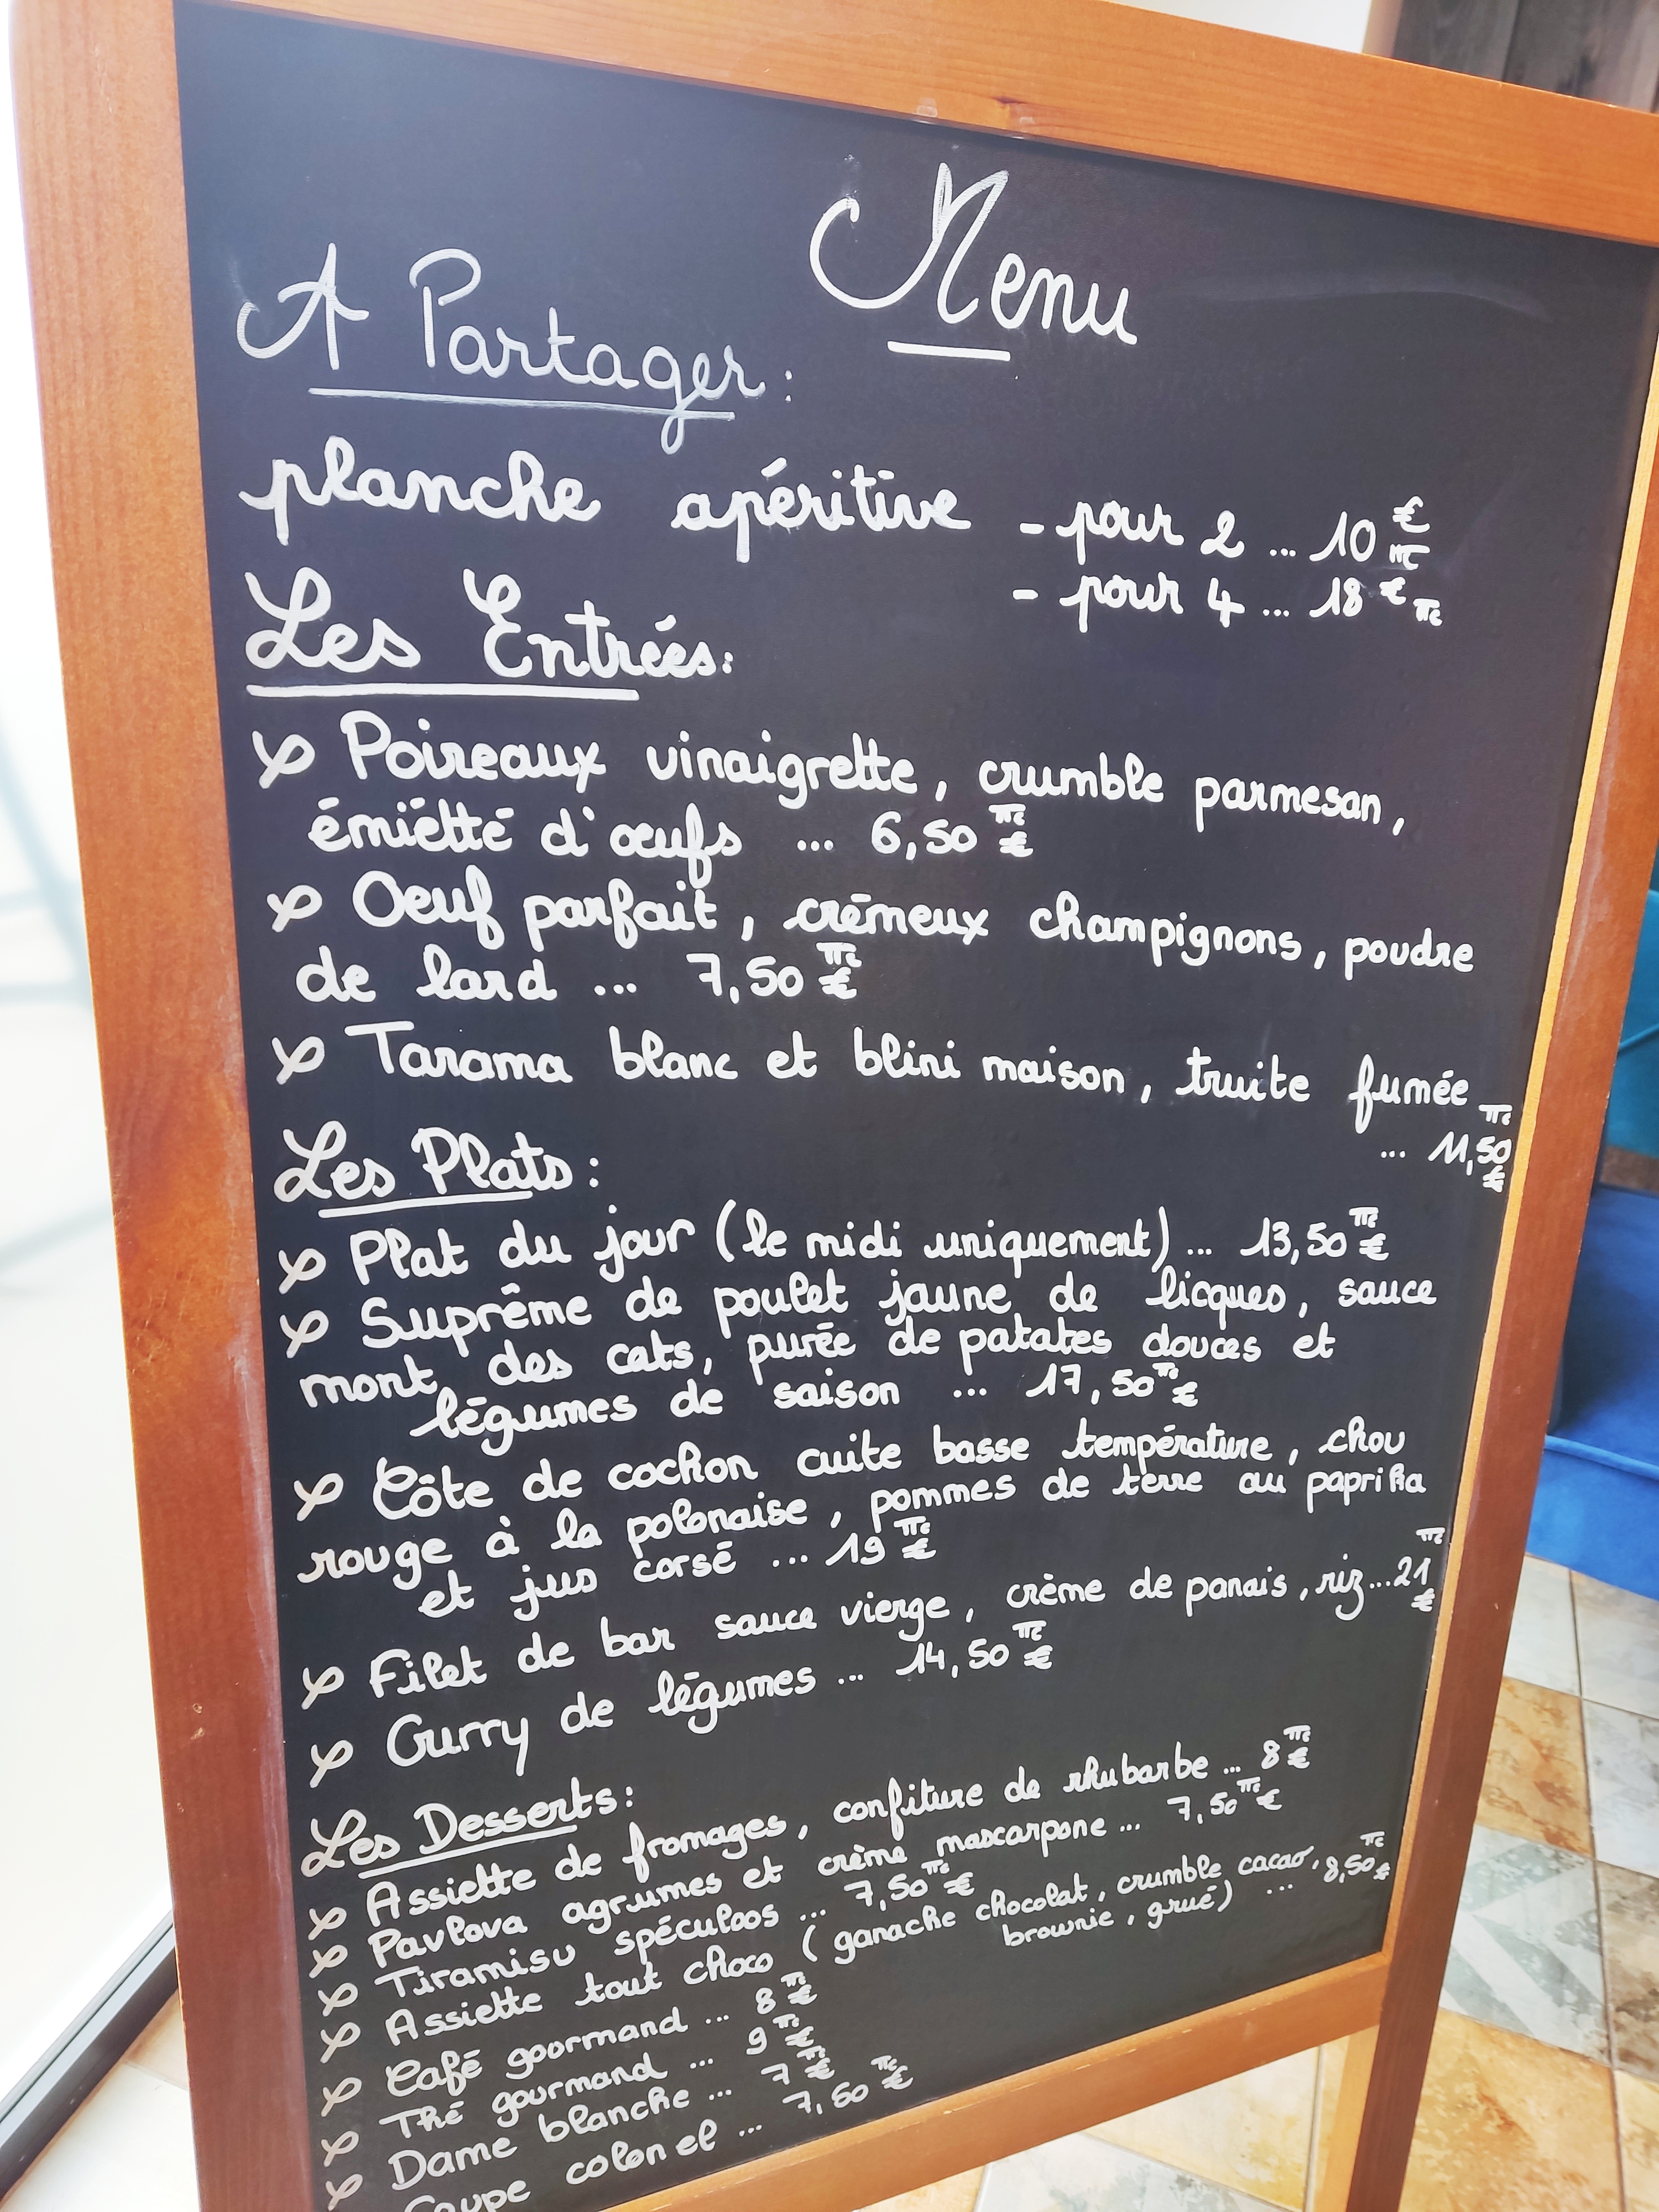 Menu
A Partager :
planche apéritive - pour 2 ... 10 € TTC
- pour 4 ... 18 € TTC
Les Entrées :
Poireaux vinaigrette, crumble parmesan,
émietté d'œufs ... 6,50 TTC €
Oeuf parfait, crémeux champignons, poudre
de lard ... 7,50 TTC €
Tarama blanc et blini maison, truite fumée
... 11,50 TTC €
Les Plats :
Plat du jour (le midi uniquement) ... 13,50 TTC €
Suprême de poulet jaune de licques, sauce
mont des cats, purée de patates douces et
légumes de saison ... 17,50 TTC €
Côte de cochon cuite basse température, chou
rouge à la polonaise, pommes de terre au paprika
et jus corsé ... 19 TTC €
Filet de bar sauce vierge, crème de panais, riz ... 21 TTC €
Curry de légumes ... 14,50 TTC €
Les Desserts :
Assiette de fromages, confiture de rhubarbe ... 8 TTC €
Pavlova agrumes et crème mascarpone ... 7,50 TTC €
Tiramisu spéculoos ... 7,50 TTC €
Assiette tout choco (ganache chocolat, crumble cacao,
brownie, grué) ... 8,50 TTC €
Café gourmand ... 8 TTC €
Thé gourmand ... 9 TTC €
Dame blanche ... 7 TTC €
Coupe colonel ... 7,50 TTC €